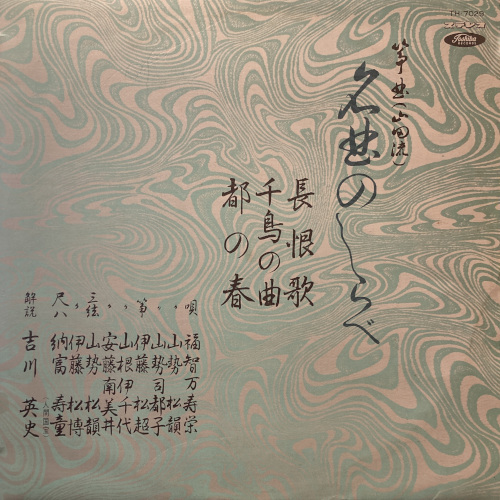 TH-7029
ステレオ
Toshiba
RECORDS
箏曲(山田流)
名曲のしらべ
長恨歌
千鳥の曲
都の春
唄 福智万寿栄
〃 山勢松韻
〃 山勢司都子
箏 伊藤松超
〃 山根伊千代
〃 安藤南美井
三絃 山勢松韻
〃 伊藤松博
尺八 納富寿童
(人間国宝)
解説 吉川英史